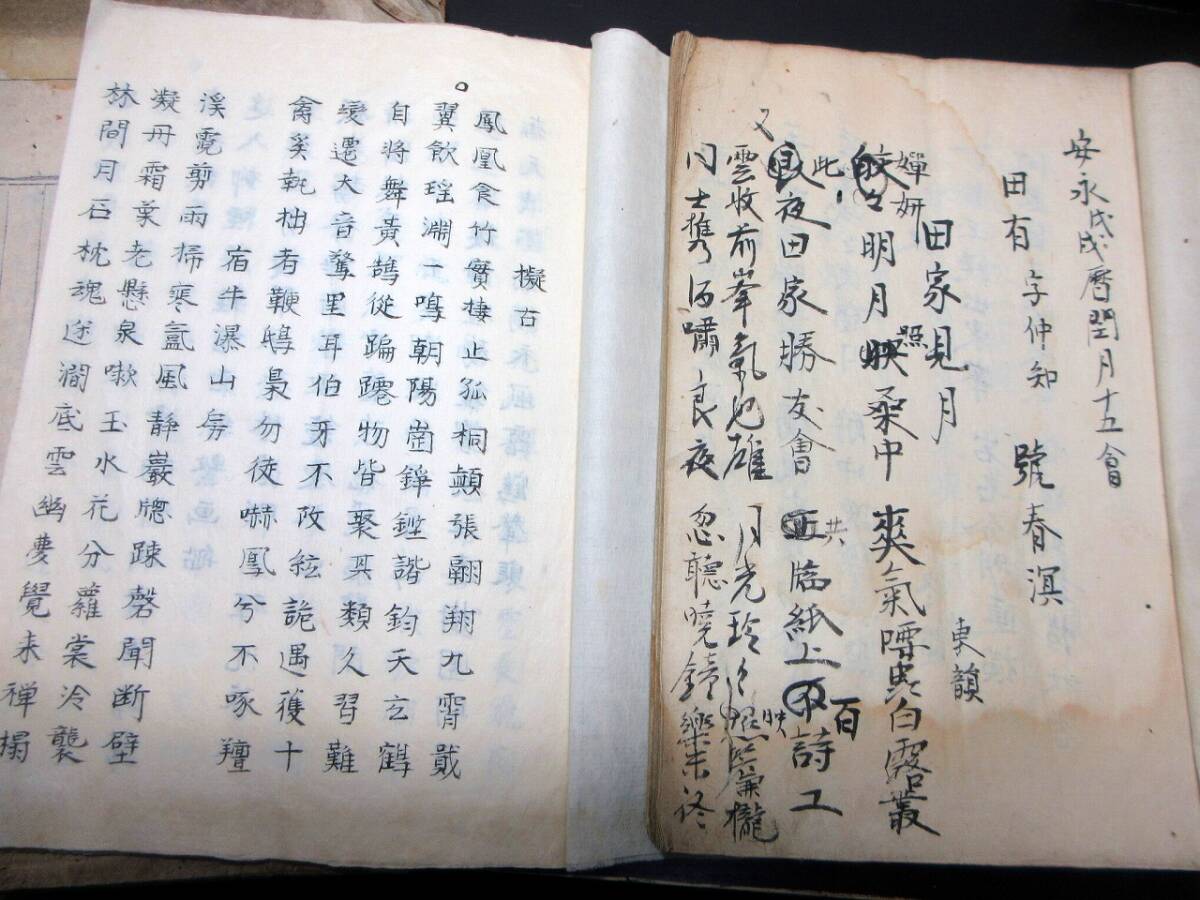 安永戊戌暦閏月十五會
田有 字仲知 號春溟
田家見月 東韻
嬋妍
皎々明月映桑中 爽氣嘌虫白露叢
照
此
良夜田家勝友會 臨紙上百詩工
共
又
雲收前峯氣也雄 月光玲々照簾櫳
映
同士携酒嘯良夜 忽聽曉鐘樂未終
擬古
鳳凰食竹實棲止孤桐顛張翮翔九霄戢
翼飲瑶淵一鳴朝陽崗錚鏗諧鈞天玄鶴
自將舞黄鵠從蹁躚物皆聚其類久習難
變遷大音驚里耳伯牙不改絃詭遇獲十
禽奚執拙者鞭鴟梟勿徒嚇鳳兮不啄羶
宿牛瀑山房
溪霓剪雨掃寒氳風静巖牕踈磬聞断壁
凝丹霜葉老懸泉嗽玉水花分蘿裳冷襲
林間月石枕魂迷澗底雲幽夢覺来禅榻